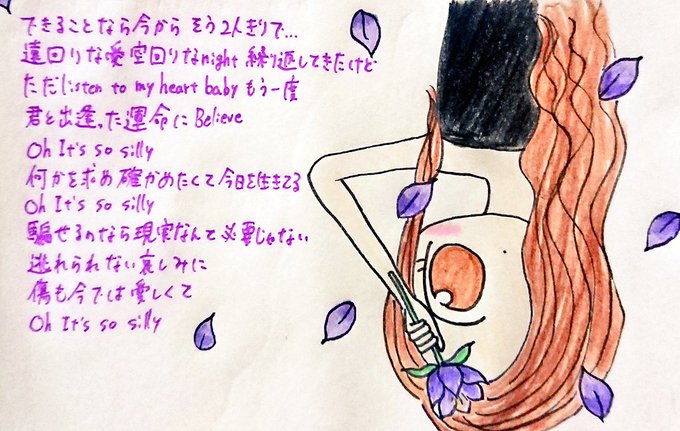 できることなら今から そう2人きりで…
遠回りな愛空回りなnight 繰り返してきたけど
ただlisten to my heart baby もう一度
君と出逢った運命に Believe
Oh It's so silly
何かを求め確かめたくて今日を生きてる
Oh It's so silly
騙せるのなら現実なんて必要じゃない
逃れられない哀しみに
傷も今では愛しくて
Oh It's so silly